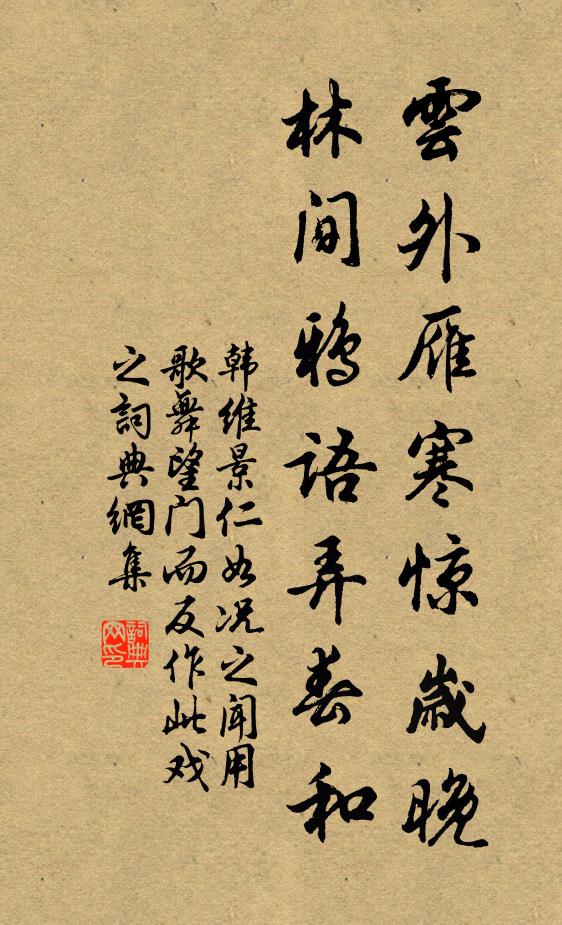 雲外雁寒惊歲晚
林间鸦語弄春和
韩維景仁如况之闻用
歌舞望门而反作此戏
之詞典網集
詞典网印